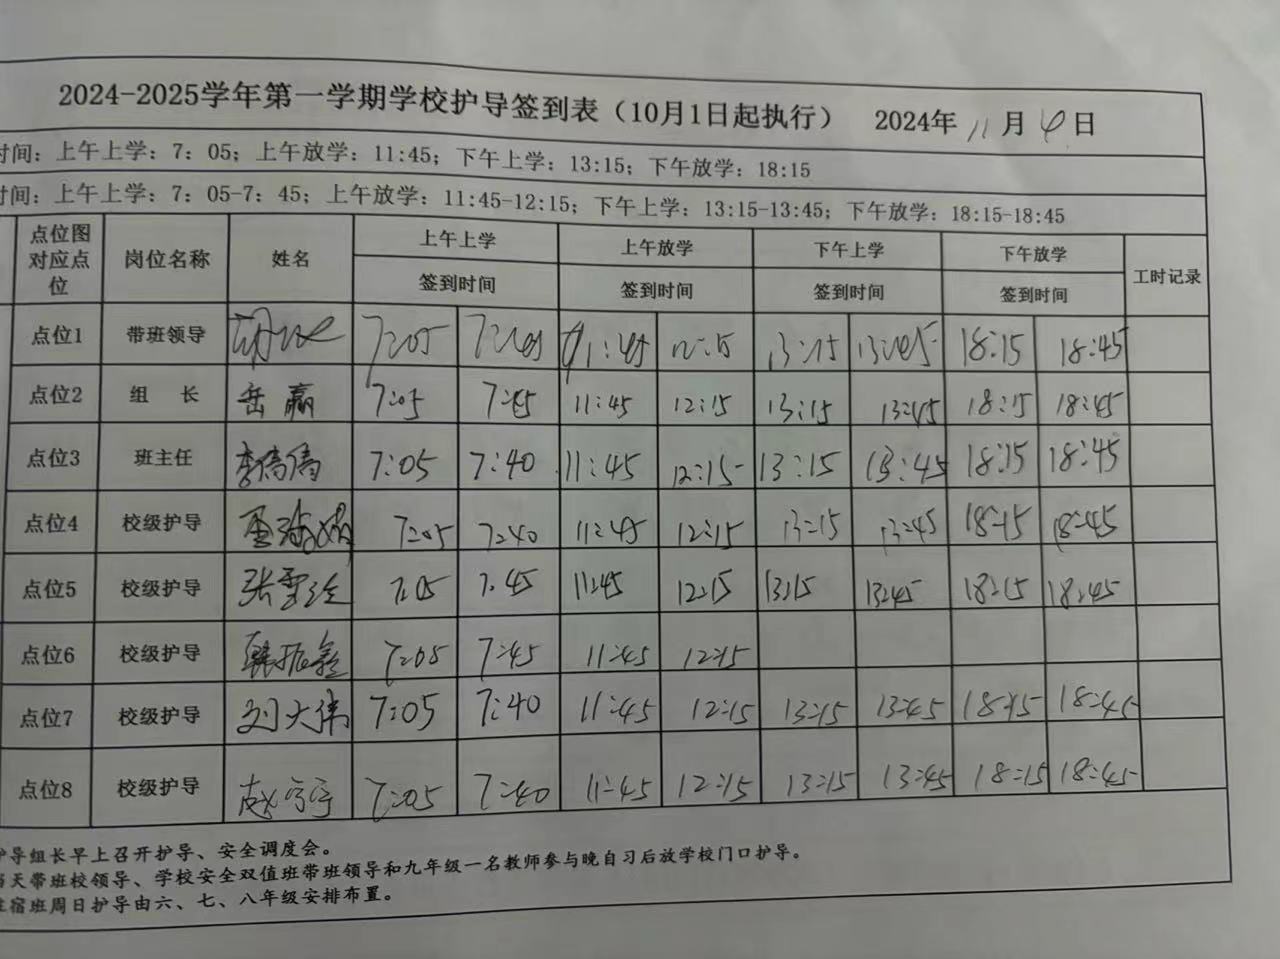 2024-2025学年第一学期学校护导签到表（10月1日起执行） 2024年 11 月 4 日
时间：上午上学：7：05；上午放学：11:45；下午上学：13:15；下午放学：18:15
时间：上午上学：7：05-7：45；上午放学：11:45-12:15；下午上学：13:15-13:45；下午放学：18:15-18:45
点位图对应点位 岗位名称 姓名 上午上学 上午放学 下午上学 下午放学 工时记录
签到时间 签到时间 签到时间 签到时间
点位1 带班领导 7:05 11:45 12:15 13:15 13:45 18:15 18:45
点位2 组 长 岳赢 7:05 7:45 11:45 12:15 13:15 13:45 18:15 18:45
点位3 班主任 李倩倩 7:05 7:40 11:45 12:15 13:15 13:45 18:15 18:45
点位4 校级护导 7:05 7:40 11:45 12:15 13:15 13:45 18:15 18:45
点位5 校级护导 7:05 7:45 11:45 12:15 13:15 13:45 18:15 18:45
点位6 校级护导 韩振鑫 7:05 7:45 11:45 12:15
点位7 校级护导 刘大伟 7:05 7:40 11:45 12:15 13:15 13:45 18:15 18:45
点位8 校级护导 赵宁宁 7:05 7:40 11:45 12:15 13:15 13:45 18:15 18:45
护导组长早上召开护导、安全调度会。
当天带班校领导、学校安全双值班带班领导和九年级一名教师参与晚自习后放学校门口护导。
住宿班周日护导由六、七、八年级安排布置。